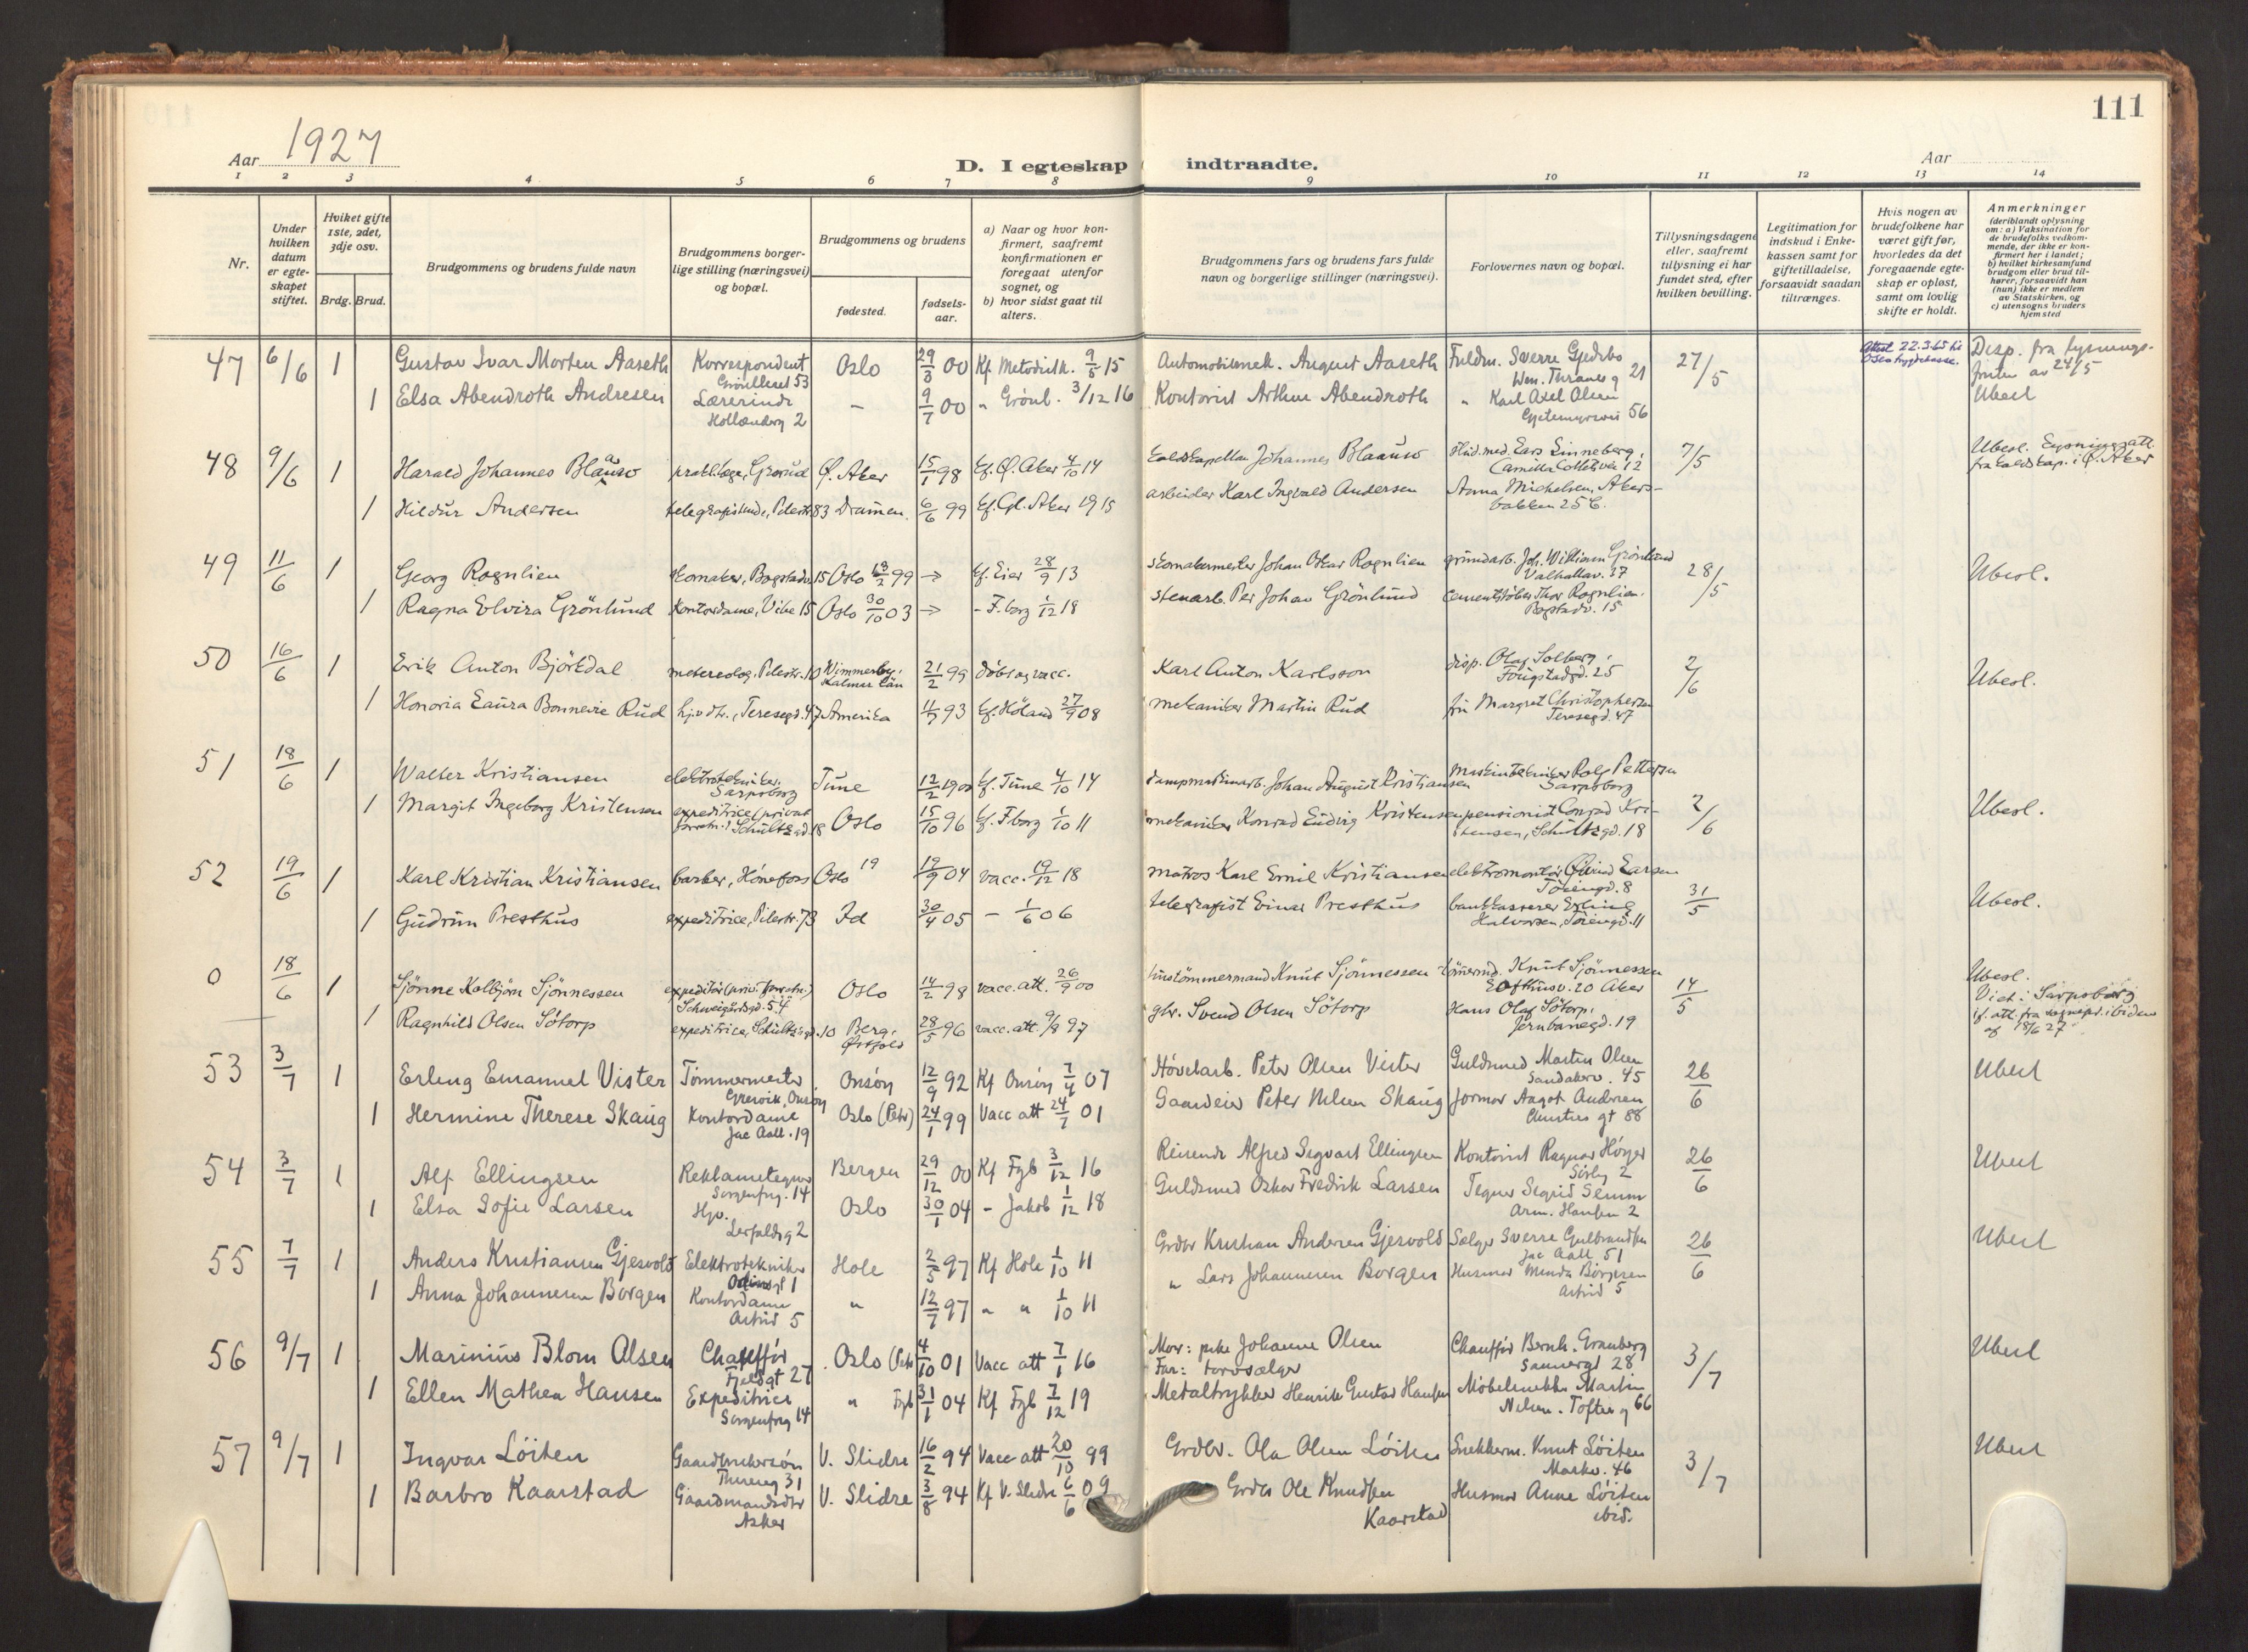 111
Aar 1927
D. I egteskap indtraadte.
Aar
1 2 3 4 5 6 7 8 9 10 11 12 13 14
Nr.
Under hvilken datum er egte-skapet stiftet.
Hviket gifte 1ste, 2det, 3dje osv.
Brdg. Brud.
Brudgommens og brudens fulde navn
Brudgommens borger-lige stilling (næringsvei) og bopæl.
Brudgommens og brudens
fødested.
fødsels-aar.
a) Naar og hvor kon-firmert, saafremt konfirmationen er foregaat utenfor sognet, og
b) hvor sidst gaat til alters.
Brudgommens fars og brudens fars fulde navn og borgerlige stillinger (næringsvei).
Forlovernes navn og bopæl.
Tillysningsdagene eller, saafremt tillysning ei har fundet sted, efter hvilken bevilling.
Legitimation for indskud i Enke-kassen samt for giftetilladelse, forsaavidt saadan tiltrænges.
Hvis nogen av brudefolkene har været gift før, hvorledes da det foregaaende egte-skap er opløst, samt om lovlig skifte er holdt.
Anmerkninger (deriblandt oplysning om: a) Vaksination for de brudefolks vedkom-mende, der ikke er kon-firmert her i landet; b) hvilket kirkesamfund brudgom eller brud til-hører, forsaavidt han (hun) ikke er medlem av Statskirken, og c) utensogns bruders hjemsted
47 6/6 1 Gustav Ivar Morten Aaseth Korrespondent Oslo 29/3 00 Kf. Metodistk. 9/5 15 Automobilmek. August Aaseth Fuldm. Sverre Gjedebo 27/5 Disp. fra lysnings-
Grønlleret 53 Wm. Thranes g 21 fristen av 24/5
1 Elsa Abendroth Andresen Lærerinde - 9/7 00 " Grønl. 3/12 16 Kontorist Arthur Abendroth " Karl Axel Olsen Ubesl
Hollænderg 2 Gjetemyrsvei 56
Attest 22.3.65 til
Oslo trygdekasse.
48 9/6 1 Harald Johannes Blaauw prakt.læge, Grorud Ø. Aker 15/1 98 kf. Ø. Aker 4/10 14 kaldskapellan Johannes Blaauw stud. med. Lars Linneberg, 7/5 Ubesl. Lysningsatt.
Camilla Collets vei 12 fra kaldskap. i Ø. Aker
1 Hildur Andersen telegrafistinde, Pilestr. 83 Drammen. 6/6 99 kf. Gl. Aker 1915 arbeider Karl Ingvald Andersen Anna Michelsen, Akers-
bakken 25 C.
49 11/6 1 Georg Rognlien skomaker, Bogstadv. 15 Oslo 18/2 99 → kf. Eier 28/9 13 skomakermester Johan Oskar Rognlien grundarb. Joh. William Grönlund 28/5 Ubesl.
Valhallav. 37
1 Ragna Elvira Grönlund kontordame, Vibe 15 Oslo 30/10 03 → - F.borg 1/12 18 stenarb. Per Johan Grönlund cementstøber Thor Rognlien.
Bogstadv. 15
50 16/6 1 Erik Anton Björkdal metereolog, Pilestr. 10 Wimmerby, 21/2 99 døbt og vacc. Karl Anton Karlsson disp. Olaf Solberg, 2/6 Ubesl.
Kalmar län
1 Honoria Laura Bonnevie Rud hj.v. dtr., Teresegd. 47 Amerika 11/7 93 kf. Høland 27/9 08 mekaniker Martin Rud fru Margret Christophersen
Teresegd. 47
51 18/6 1 Walter Kristiansen elektrotekniker. Tune 12/2 1900 kf. Tune 4/10 14 dampmaskinarb. Johan August Kristiansen Maskintekniker Rolf Petterson 2/6 Ubesl.
Sarpsborg Sarpsborg
1 Margit Ingeborg Kristensen expeditrice (privat Oslo 15/10 96 kf. F.borg 1/10 11 mekaniker Konrad Ludvig Kristensen pensionist Conrad Kri-
forretn.) Schultzgd. 18 stensen, Schultzgd. 18
52 19/6 1 Karl Kristian Kristiansen barber, Hønefoss Oslo 19 19/9 04 vacc. 19/12 18 matros Karl Emil Kristiansen elektromontör Öivind Larsen 31/5 Ubesl.
Töiengd. 8
1 Gudrun Presthus expeditrice, Pilestr. 73 Id 30/4 05 - 1/6 06 telegrafist Einar Presthus bankkasserer Erling
Halvorsen, Töiengd. 11
0 18/6 1 Sjönne Kolbjörn Sjönnessen expeditör (priv. forretn.) Oslo 14/2 98 vacc. att. 26/9 00 hustömmermand Knut Sjönnessen tömmermd. Knut Sjönnessen 14/5 Ubesl.
Schweigårdsgd. 54 Eofthusv. 20 Aker Viet i Sarpsborg
1 Ragnhild Olsen Sötorp expeditrice, Schultzgd. 10 Berg, 28/5 96 vacc. att. 9/8 97 gbr. Svend Olsen Sötorp Hans Olaf Sötorp, if. att. fra sognepr. ibidem
Østfold Jernbanegd. 19 af 18/6 27
53 3/7 1 Erling Emanuel Vister Tømmermester Onsøy 12/9 92 Kf Onsøy 7/4 07 Høvelarb. Peter Olsen Vister Guldsmed Martin Olsen 26/6 Ubesl
Gresvik, Onsøy Sandakerv. 45
1 Hermine Therese Skaug Kontordame Oslo (Petr) 24/1 99 Vacc att 24/7 01 Gaardeier Peter Nilsen Skaug Jormor Aagot Andersen
Jac Aall. 19 gt 88
54 3/7 1 Alf Ellingsen Reklametegner Bergen 29/12 00 Kf Fgb 3/12 16 Reisende Alfred Sigvart Ellingsen Kontorist Ragnar Höyer 26/6 Ubesl
Sorgenfrig. 14 Sörbyg 2
1 Elsa Sofie Larsen Hjv. Oslo 30/1 04 - Jakob 1/12 18 Guldsmed Oskar Fredrik Larsen Tegner Sigrid Semm
Lerfaldsg 2 Arm. Hansen 2
55 7/7 1 Anders Kristiansen Gjesvold Elektrotekniker Hole 2/5 97 Kf Hole 1/10 11 Grdbr Kristian Andersen Gjesvold Sælger Sverre Gulbrandsen 26/6 Ubesl
Odinsgt 1 Jac Aall 51
1 Anna Johannesen Borgen Kontordame " 12/7 97 " " 1/10 11 " Lars Johannesen Borgen Husmor Minda Börgesen
Astrid 5 Astrid 5
56 9/7 1 Marinius Blom Olsen Chauffør Oslo (Petr 4/10 01 Vacc att 7/1 16 Mor: pike Johanne Olsen Chauffør Bernh. Granberg 3/7 Ubesl
Fjeldgt 27 Far: torvsælger Sannergt 28
1 Ellen Mathea Hansen Expeditrice " Fgb 31/1 04 Kf Fgb 7/12 19 Metaltrykker Henrik Gustav Hansen Møbelsnekker Martin
Sorgenfrig 14 Nilsen. Toftesg 66
57 9/7 1 Ingvar Löiten Gaardbrukersøn V. Slidre 16/2 94 Vacc att 20/10 99 Grdbr. Ola Olsen Löiten Snekkerm. Knut Löiten 3/7 Ubesl
Thereseg 31 Markv. 46
1 Barbro Kaarstad Gaardmandsdtr V. Slidre 3/8 94 Kf V. Slidre 6/6 09 Grdbr Ole Knudsen Husmor Anne Löiten
Asker Kaarstad ibid.